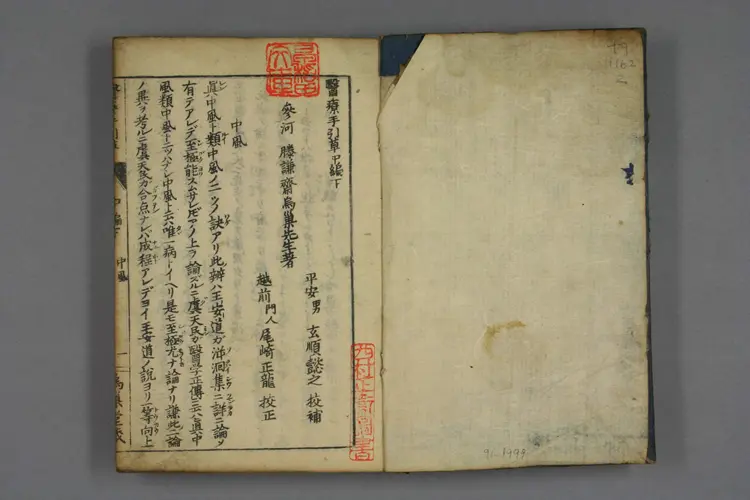 醫療手引草中編下
參河 滕謙齋烏巢先生著
平安男 玄順懿之 校補
越前門人 尾崎正龍 校正
中風
眞中風ト類中風ノ二ツノ訣アリ此辨ハ王安道ガ溯洄集ニ詳ニ論メ
有テアレデ至極能スムサレ𪜈アノ上ヲ論ズルニ虞天民ガ醫學正傳ニ云ハ眞中
風類中風ト二ツハナシ中風ト云ハ唯一病トイヘリ是モ至極尤ナ論ナリ謙此二論
ノ異ヲ考ルニ虞天民ガ合点ナレバ成程アレデヨイ王安道ノ說ヨリ一等向上
中編下 中風 一
91-1999